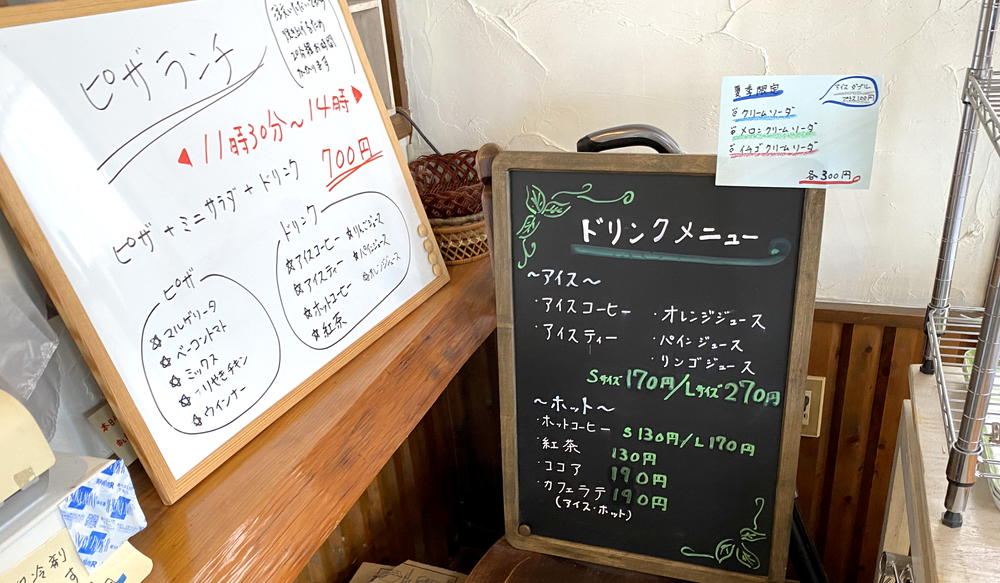 ピザランチ
20分程お時間
かかります
11時30分～14時
700円
ピザ+ミニサラダ+ドリンク
ピザ
☆マルゲリータ
☆ベーコントマト
☆ミックス
☆てりやきチキン
☆ウインナー
ドリンク
☆アイスコーヒー
☆アイスティー
☆ホットコーヒー
☆紅茶
☆りんごジュース
☆パインジュース
☆オレンジジュース
夏季限定
クリームソーダ
メロンクリームソーダ
イチゴクリームソーダ
各300円
アイスダブル
プラス100円
ドリンクメニュー
～アイス～
・アイスコーヒー
・アイスティー
・オレンジジュース
・パインジュース
・リンゴジュース
Sサイズ170円/Lサイズ270円
～ホット～
・ホットコーヒー S130円/L170円
・紅茶 130円
・ココア 190円
・カフェラテ 190円
(アイス・ホット)